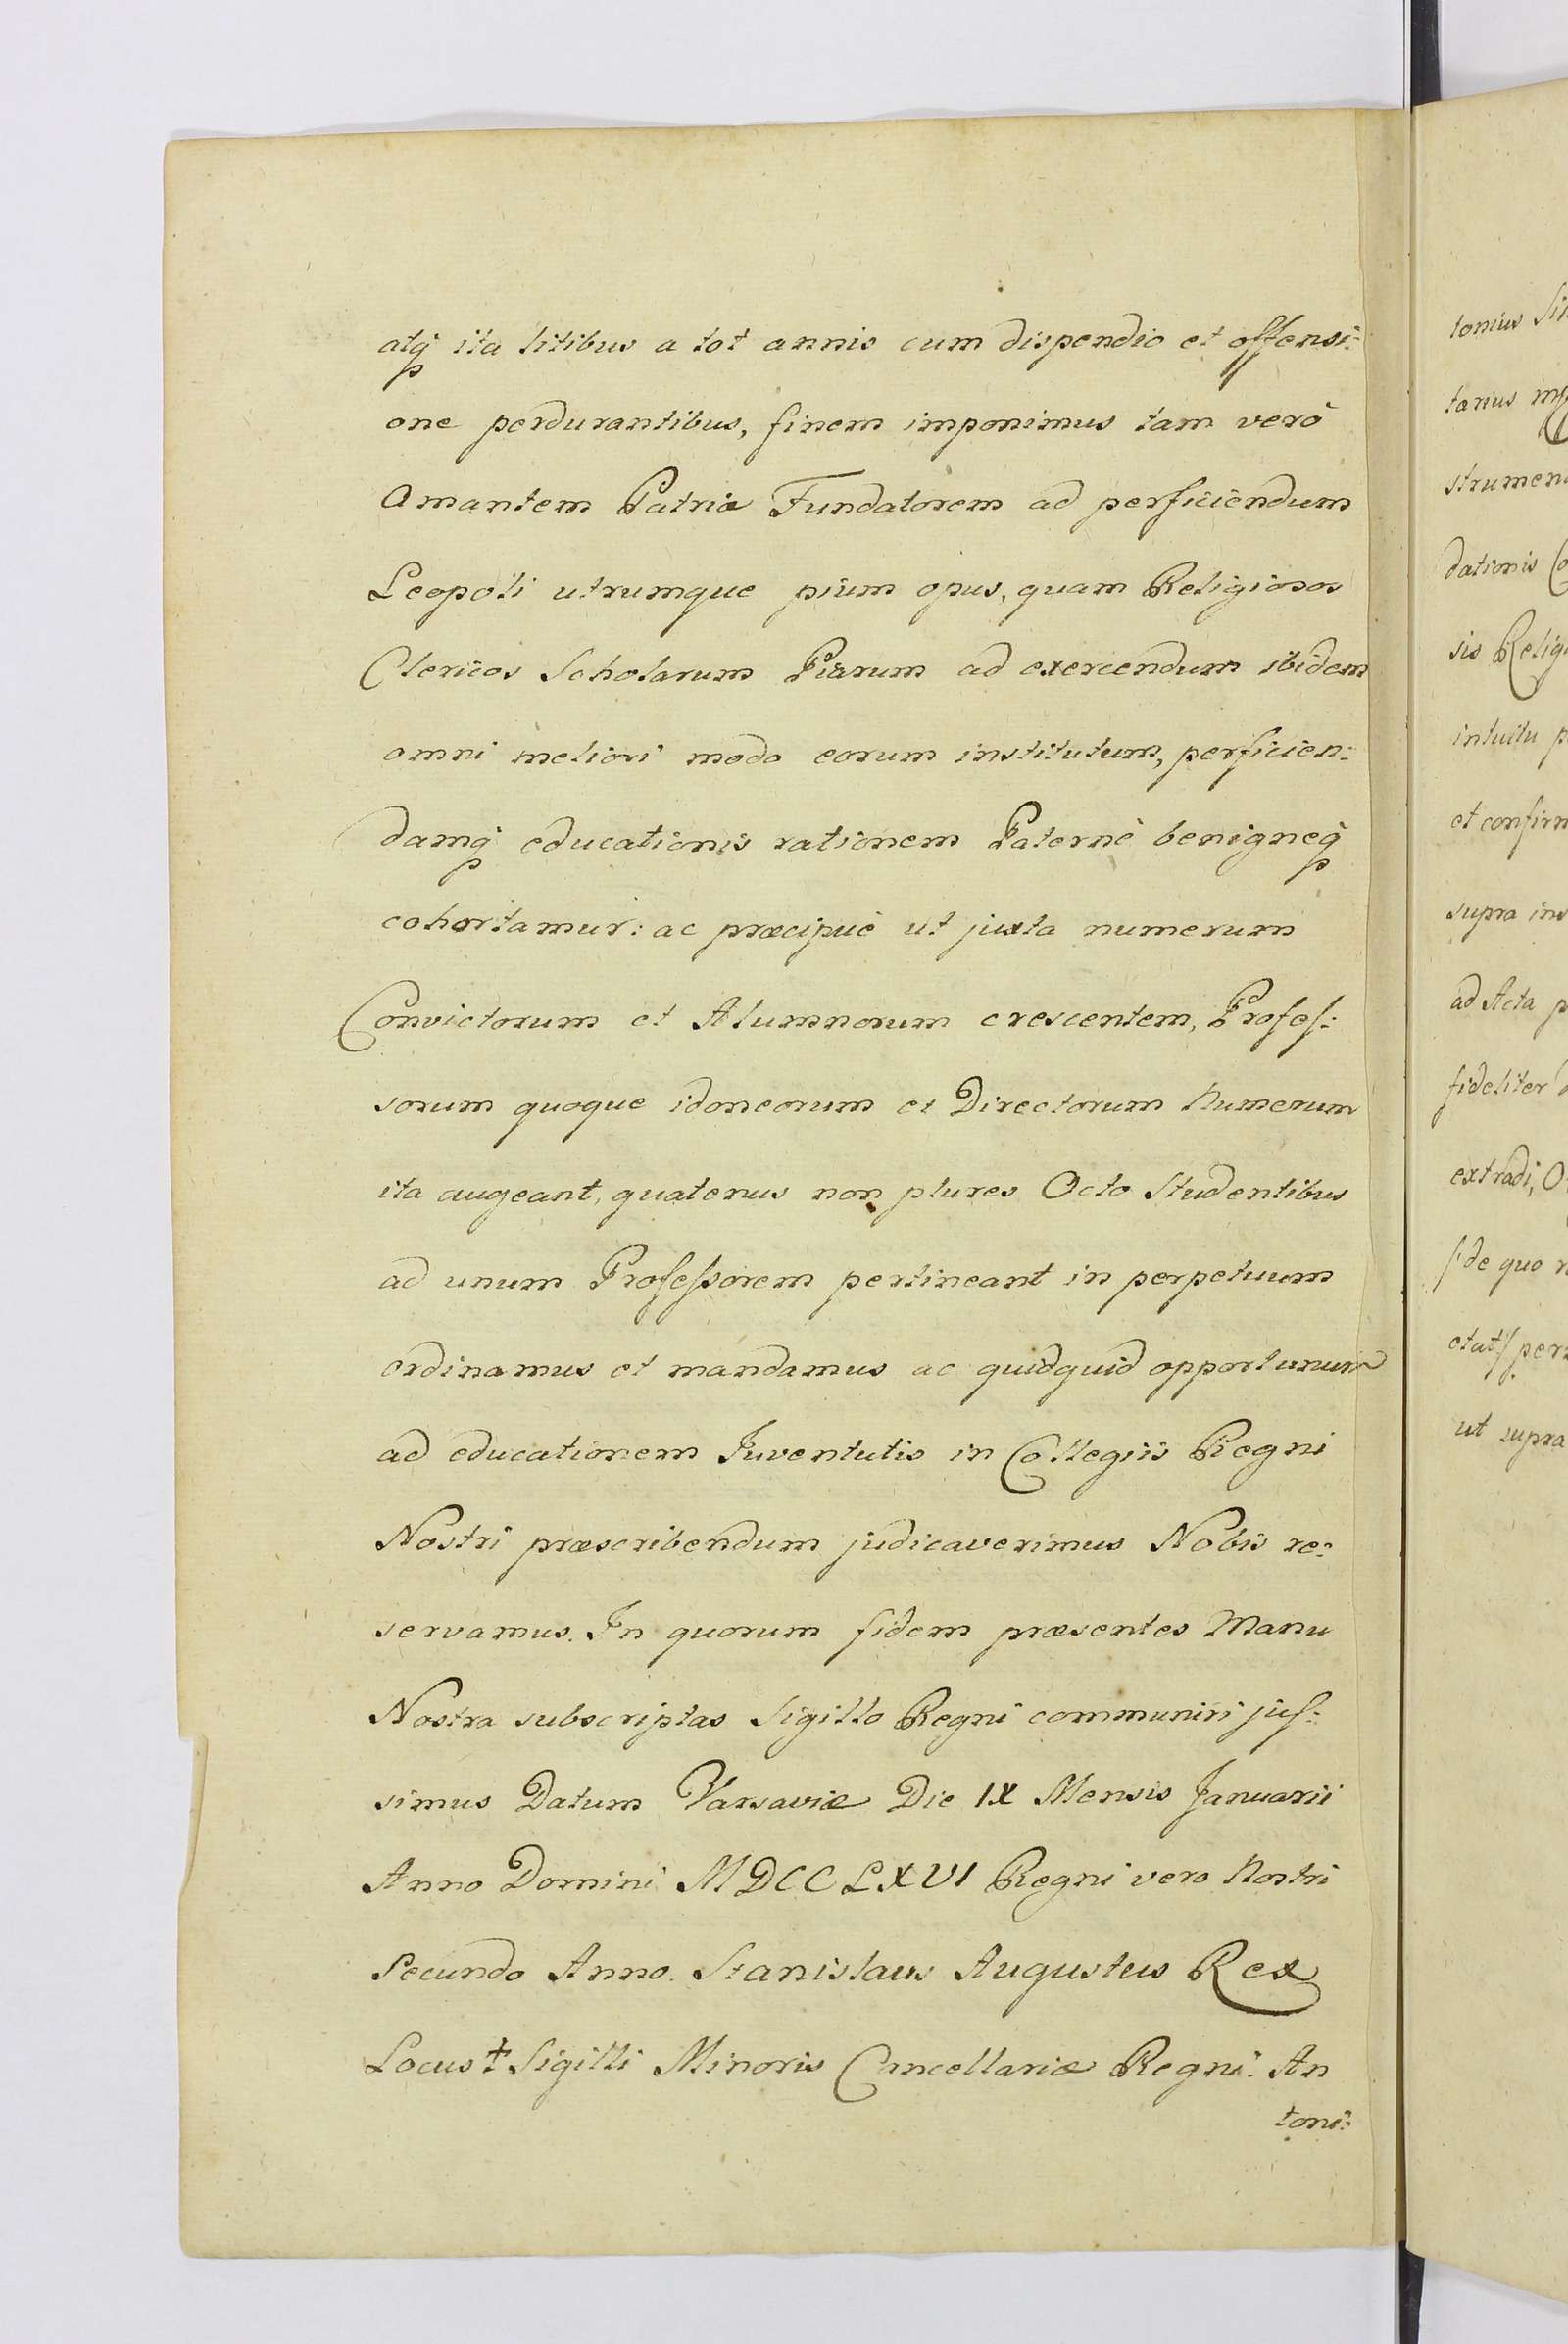 atq̃ ita litibus a tot annis cum dispendio et offensi:
one perdurantibus, finem imponimus tam verò
Amantem Patriæ Fundatorem ad perficiendum
Leopoli utrumque pium opus, quam Religiosos
Clericos Scholarum Piarum ad exercendum ibidem
omni meliori modo eorum institutum, perficien:
damq̃ educationis rationem Paternè benigneq̃
cohortamur: ac præcipuè ut juxta numerum
Convictorum et Alumnorum crescentem, Profeſ:
sorum quoque idoneorum et Directorum Numerum
ita augeant, quatenus non plures Octo Studentibus
ad unum Profeſsorem pertineant in perpetuum
ordinamus et mandamus ac quidquid opportunum
ad educationem Juventutis in Collegiis Regni
Nostri præscribendum judicaverimus Nobis re:
servamus. In quorum fidem præsentes Manu
Nostra subscriptas Sigillo Regni communiri juſ:
simus Datum Varsaviæ Die IX Mensis Januarii
Anno Domini MDCCLXVI Regni vero Nostri
Secundo Anno. Stanislaus Augustus Rex
Locus † Sigilli Minoris Cancellariæ Regni. An
toni:
tonius
tarius
strumen
dationis
sis Relig
intuitu p
et confirm
supra ins
ad Acta p
fideliter
extradi, O
de quo
ctat/ per
ut supra